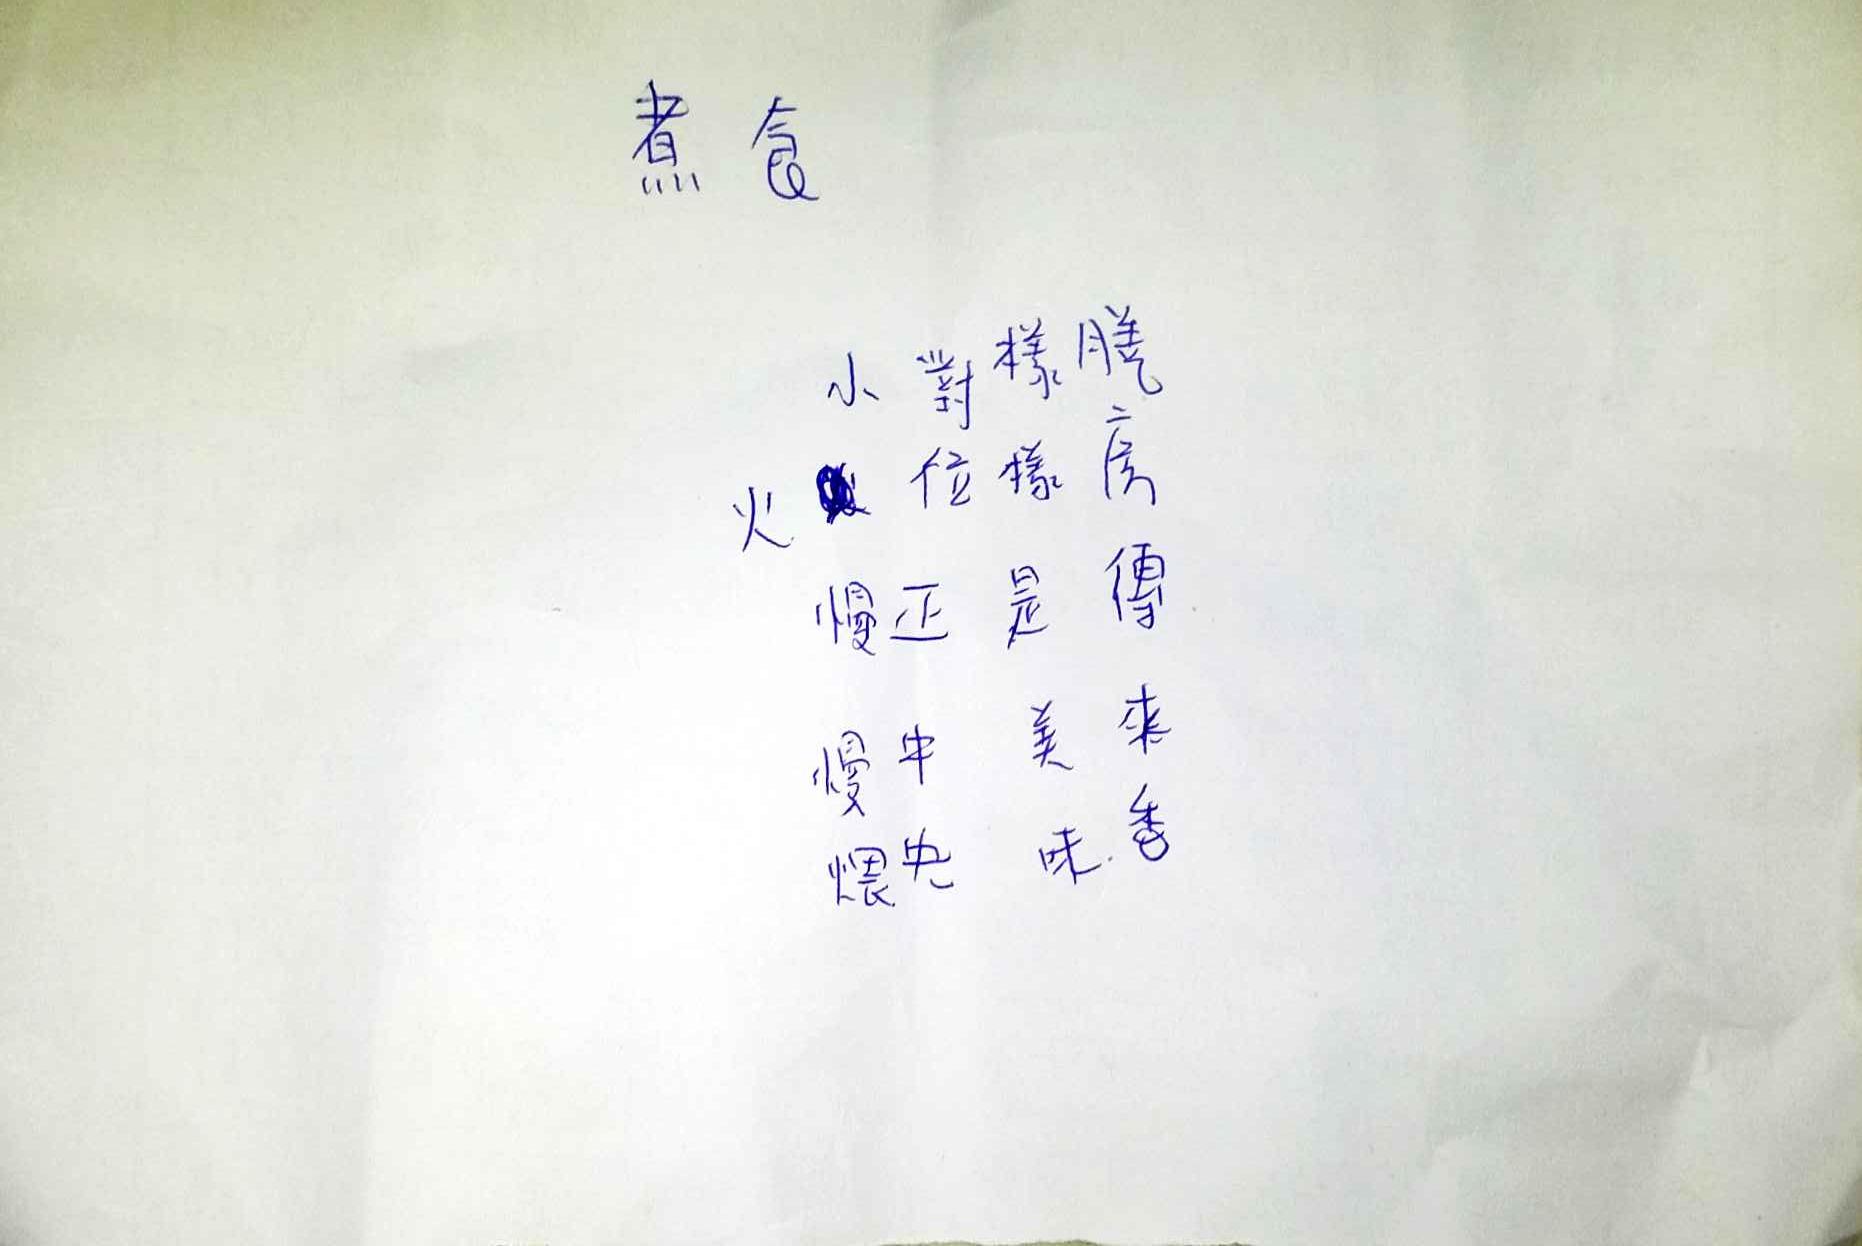 煮食
膳房傳來香
樣樣是美味.
對位正中央
小火慢慢煨.